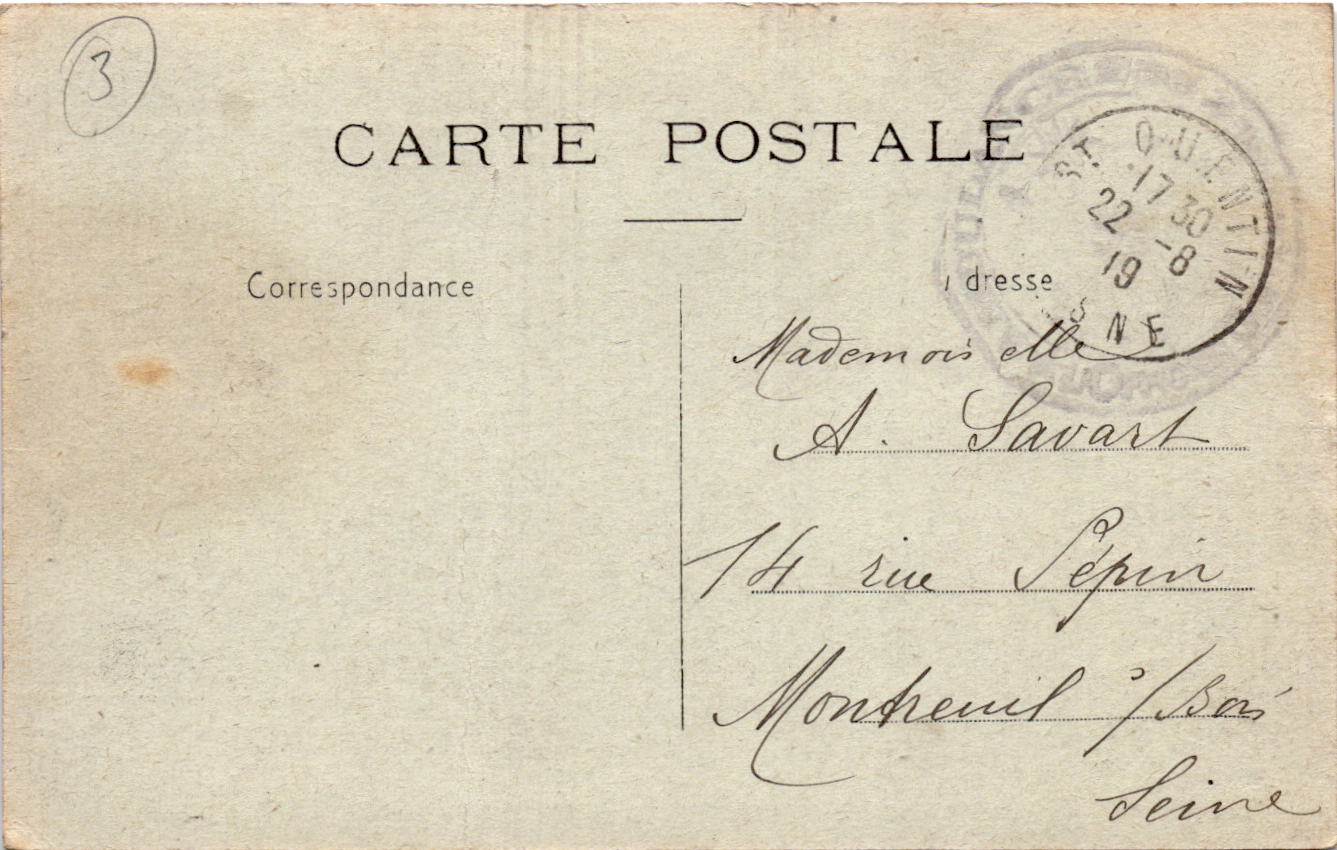 3
CARTE POSTALE
ST. QUENTIN
17 30
22 -8
19
SNE
Correspondance
dresse
Mademoiselle
A. Savart
14 rue Pépin
Montreuil s/Bois
Seine